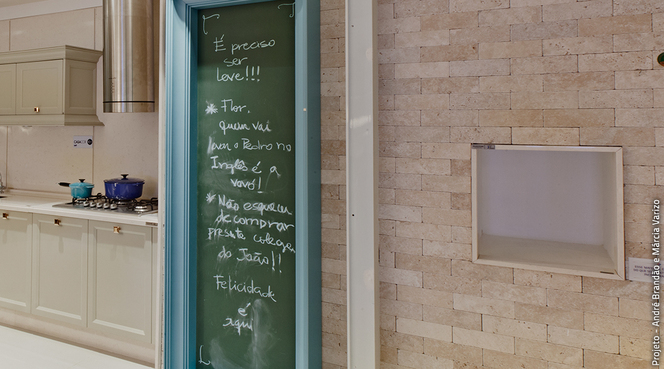 É preciso
ser
leve!!!
* Flor.
quem vai
levar o Pedro no
Inglês é a
vovó!
* Não esquecer
de comprar
presente colega
do João!!
Felicidade
é
aqui
Projeto - André Brandão e Márcia Varizo